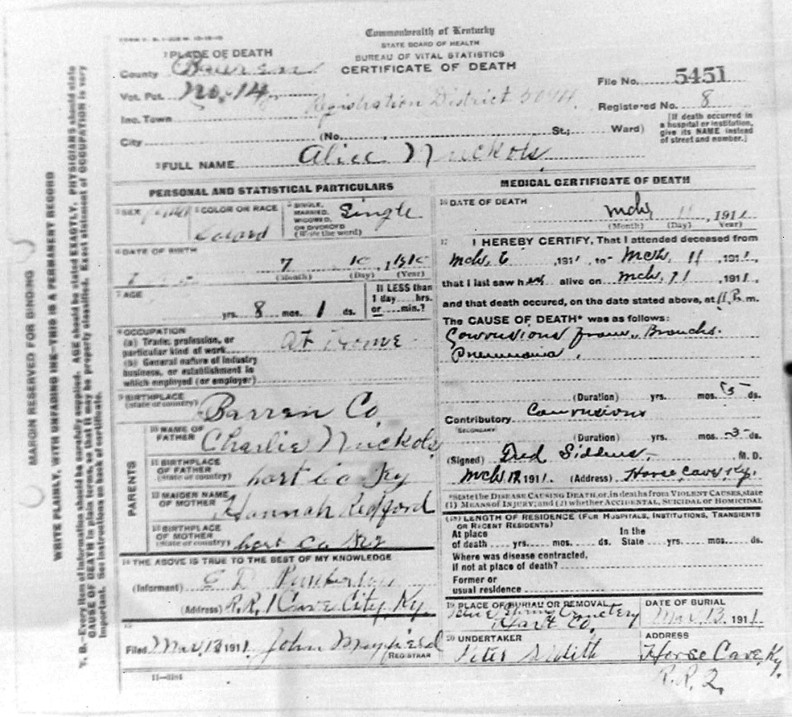 Commonwealth of Kentucky
STATE BOARD OF HEALTH
BUREAU OF VITAL STATISTICS
CERTIFICATE OF DEATH
1 PLACE OF DEATH
County Barren
Vot. Pct. No. 14
Registration District
Inc. Town
City
(No. St.; Ward)
File No. 5451
Registered No. 8
[If death occurred in
a hospital or institution,
give its NAME instead
of street and number.]
2 FULL NAME Alice Nuckols
PERSONAL AND STATISTICAL PARTICULARS
3 SEX
4 COLOR OR RACE
Colord
5 SINGLE,
MARRIED,
WIDOWED,
OR DIVORCED
(Write the word)
Single
6 DATE OF BIRTH
7 10 1910
(Month) (Day) (Year)
7 AGE
yrs. 8 mos. 1 ds.
If LESS than
1 day....hrs.
or....min.?
8 OCCUPATION
(a) Trade, profession, or
particular kind of work
At Home
(b) General nature of industry
business, or establishment in
which employed (or employer)
9 BIRTHPLACE
(State or country)
Barren Co
PARENTS
10 NAME OF
FATHER
Charlie Nuckols
11 BIRTHPLACE
OF FATHER
(State or country)
hart Co Ky
12 MAIDEN NAME
OF MOTHER
Hannah Redford
13 BIRTHPLACE
OF MOTHER
(State or country)
hart Co Ky
14 THE ABOVE IS TRUE TO THE BEST OF MY KNOWLEDGE
(Informant)
(Address) R.R. 1 Cave City, Ky.
15
Filed Mar, 13 1911 John Mayfield
REGISTRAR
MEDICAL CERTIFICATE OF DEATH
16 DATE OF DEATH
Mch 11, 1911
(Month) (Day) (Year)
17 I HEREBY CERTIFY, That I attended deceased from
Mch 6 1911, to Mch 11, 1911,
that I last saw her alive on Mch 11, 1911,
and that death occured, on the date stated above, at 11 P. m.
The CAUSE OF DEATH* was as follows:
from Broncho
Pneumonia.
(Duration) yrs. mos. 5 ds.
Contributory
SECONDARY
(Duration) yrs. mos. 3 ds.
(Signed) M. D.
Mch 12, 1911. (Address) Horse Cave, Ky.
*State the DISEASE CAUSING DEATH, or, in deaths from VIOLENT CAUSES, state
(1) MEANS OF INJURY; and (2) whether ACCIDENTAL, SUICIDAL OR HOMICIDAL
(18) LENGTH OF RESIDENCE (FOR HOSPITALS, INSTITUTIONS, TRANSIENTS
OR RECENT RESIDENTS)
At place
of death....yrs.....mos.....ds.
In the
State....yrs.....mos.....ds.
Where was disease contracted,
if not at place of death?
Former or
usual residence
19 PLACE OF BURIAL OR REMOVAL
Cemetery
Hart Co.
DATE OF BURIAL
Mar, 13, 1911.
20 UNDERTAKER
Peter
ADDRESS
Horse Cave, Ky.
R.R. 2.
MARGIN RESERVED FOR BINDING
WRITE PLAINLY, WITH UNFADING INK—THIS IS A PERMANENT RECORD
N. B.—Every item of information should be carefully supplied. AGE should be stated EXACTLY. PHYSICIANS should state
CAUSE OF DEATH in plain terms, so that it may be properly classified. Exact statement of OCCUPATION is very
important. See instructions on back of certificate.